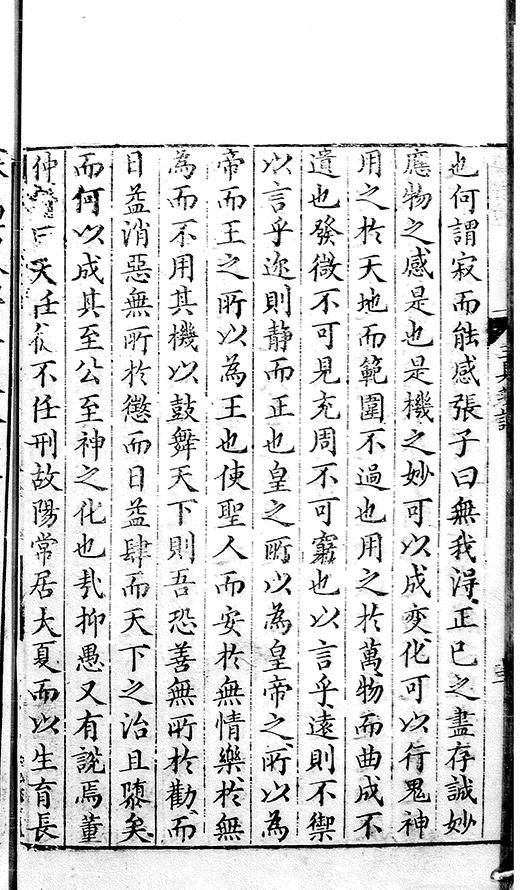 也何謂寂而能感張子曰無我淂正巳之盡存誠妙
應物之感是也是機之妙可以成变化可以行鬼神
用之於天地而範圍不過也用之於萬物而曲成不
遺也發微不可見充周不可窮也以言乎遠則不禦
以言乎迩則静而正也皇之所以為皇帝之所以為
帝而王之所以為王也使聖人而安於無情樂於無
為而不用其機以鼓舞天下則吾恐善無所於勸而
日益消惡無所於懲而日益肆而天下之治且隳矣
而何以成其至公至神之化也㢤抑愚又有說焉董
仲曰天任不任刑故陽常居大夏而以生育長